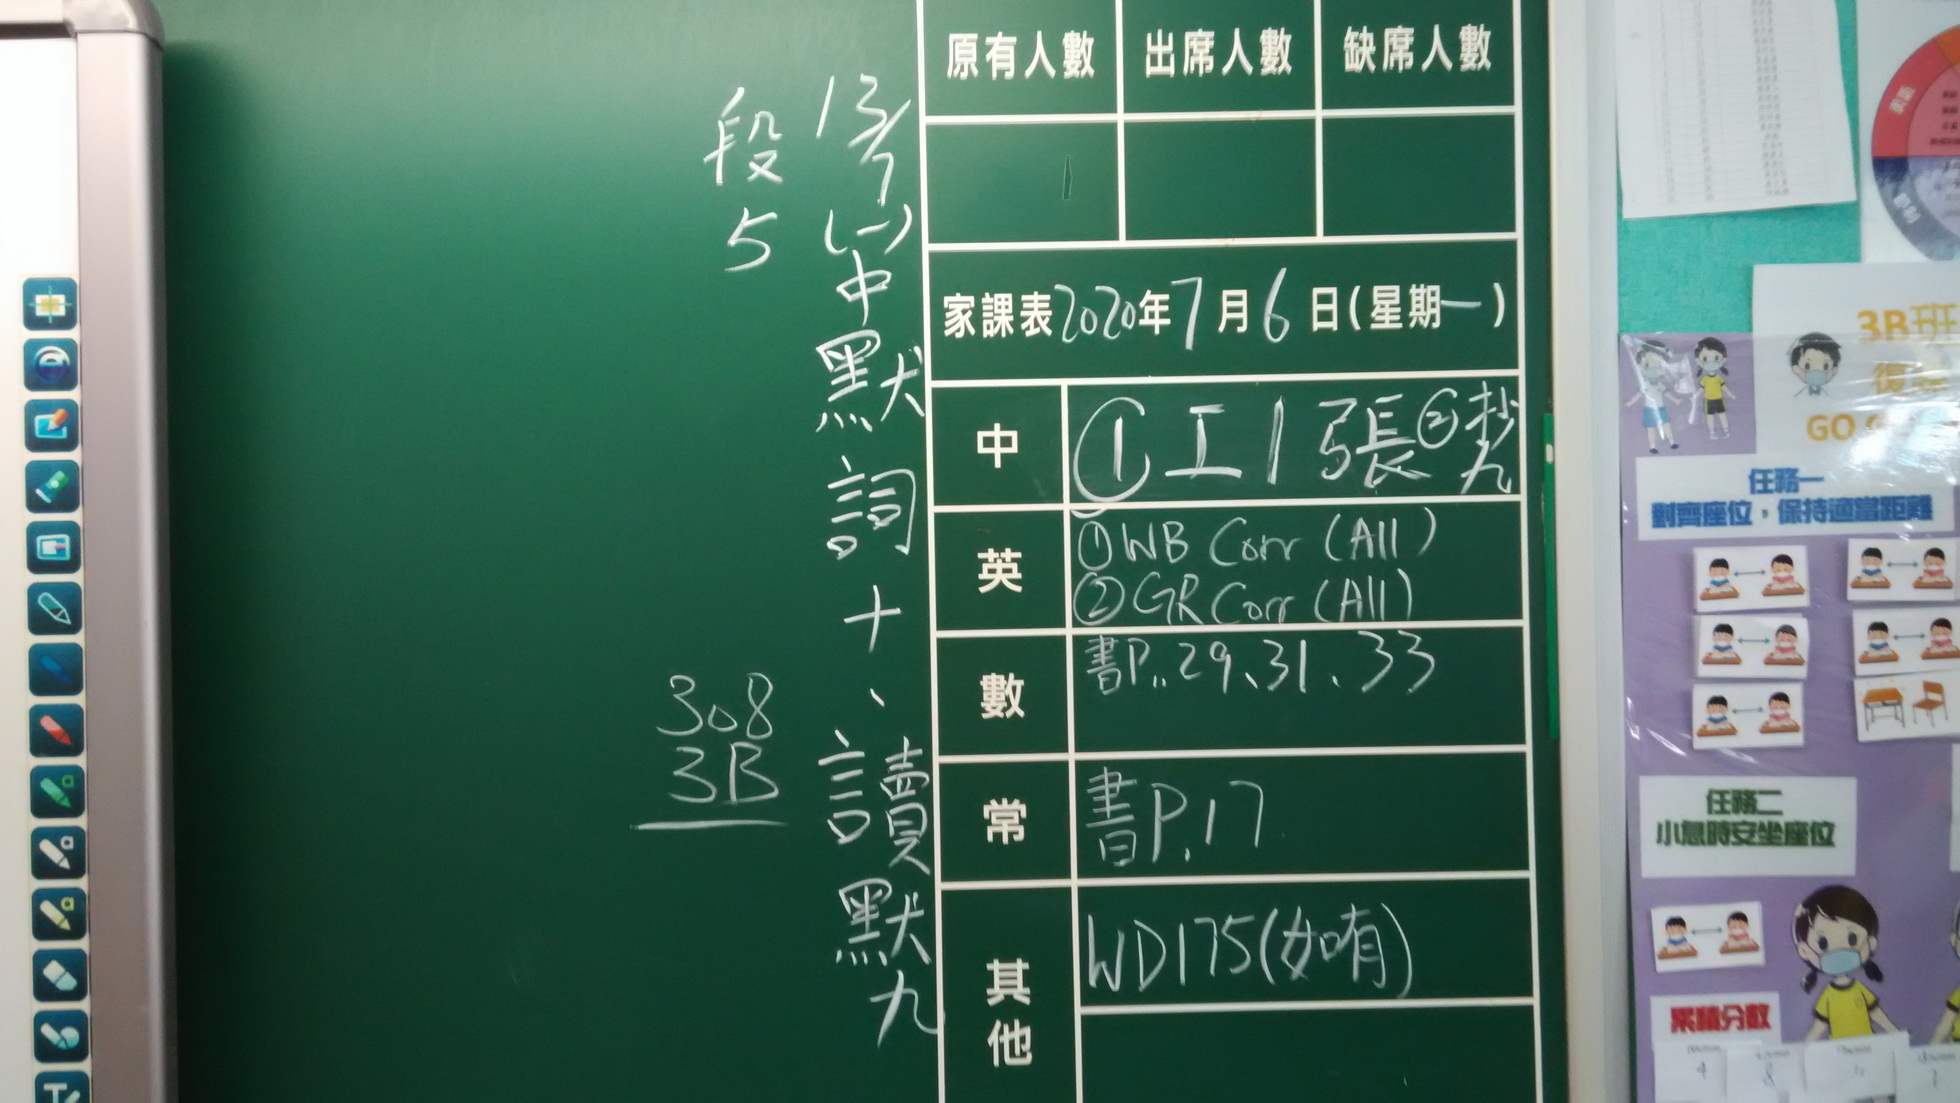 原有人數 出席人數 缺席人數
家課表2020年7月6日(星期一)
中 ①工1張②抄九
英 ①WB Corr (All)
②GR Corr (All)
數 書P..29、31、33
常 書P.17
其他 WD175(如有)
13/7(一)中默詞十、讀默九
段5
308
3B
3B班
GO
任務一
對齊座位，保持適當距離
任務二
小息時安坐座位
累積分數